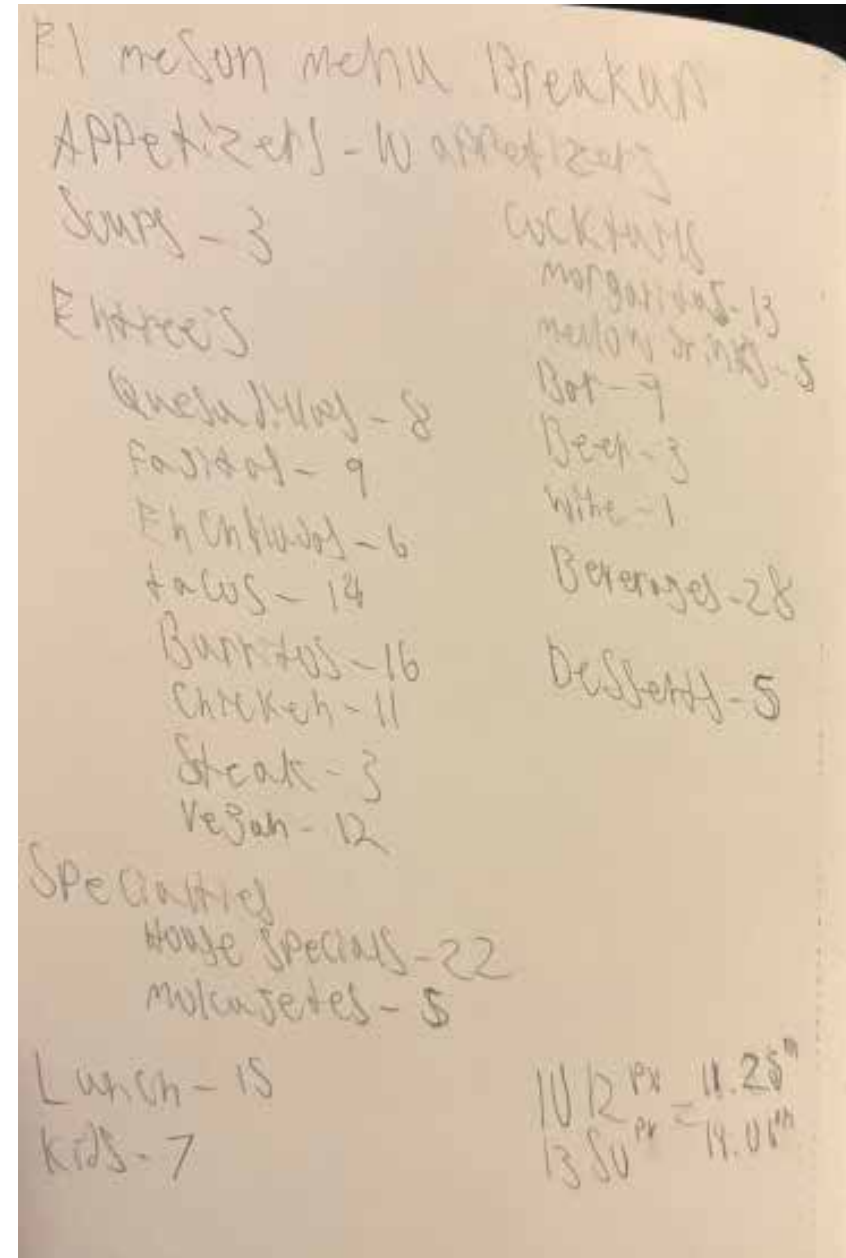 El meson menu Breakup
Appetizers - 10 appetizers
Soups - 3
Entree's
Quesadillas - 8
Fajitas - 9
Enchiladas - 6
tacos - 14
Burritos - 16
Chicken - 11
Steak - 3
Vegan - 12
Specialties
House specials - 22
molcajetes - 5
Lunch - 15
Kids - 7
Cocktails
margaritas - 13
drinks - 5
Bar - 9
Beer - 3
Wine - 1
Beverages - 28
Desserts - 5
1012 px = 11.25 in
1350 px 14.06 in